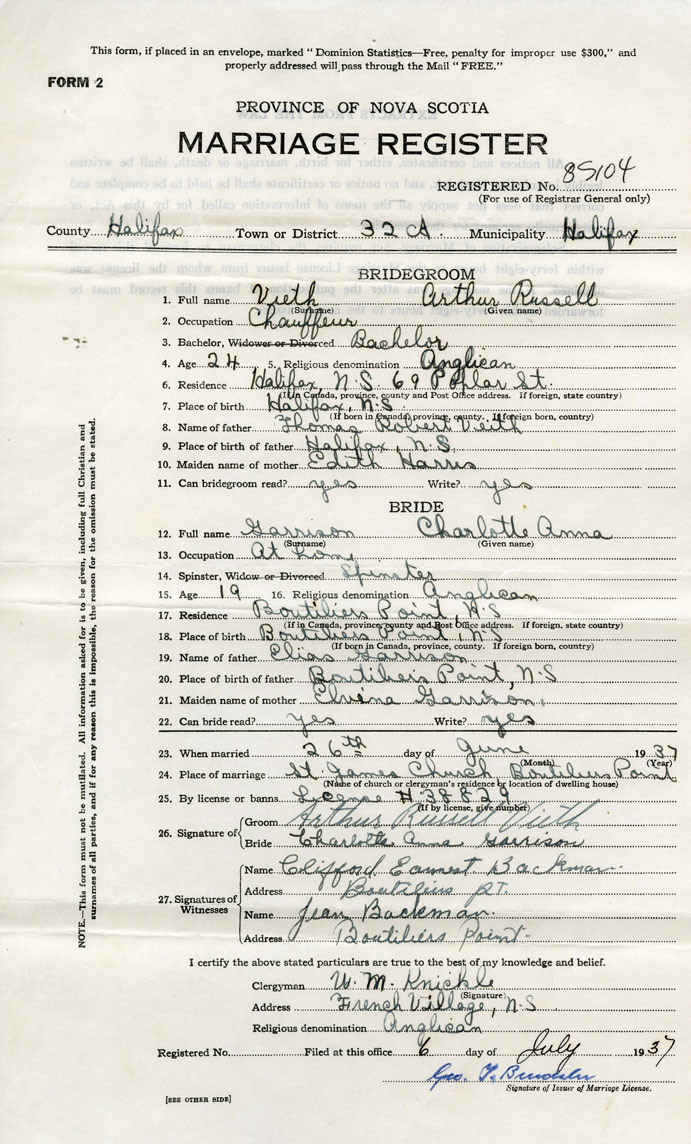 This form, if placed in an envelope, marked "Dominion Statistics—Free, penalty for improper use $300," and
properly addressed will pass through the Mail "FREE."
FORM 2
PROVINCE OF NOVA SCOTIA
MARRIAGE REGISTER
REGISTERED No. 85104
(For use of Registrar General only)
County Halifax Town or District 32 A. Municipality Halifax
BRIDEGROOM
1. Full name Vieth Arthur Russell
(Surname) (Given name)
2. Occupation Chauffeur
3. Bachelor, Widower or Divorced Bachelor
4. Age 24 5. Religious denomination Anglican
6. Residence Halifax, N.S. 69 Poplar St.
(If in Canada, province, county and Post Office address. If foreign, state country)
7. Place of birth Halifax, N.S
(If born in Canada, province, county. If foreign born, country)
8. Name of father Thomas Robert Vieth
9. Place of birth of father Halifax, N.S
10. Maiden name of mother Edith Harris
11. Can bridegroom read? yes Write? yes
BRIDE
12. Full name Garrison Charlotte Anna
(Surname) (Given name)
13. Occupation At home
14. Spinster, Widow or Divorced Spinster
15. Age 19 16. Religious denomination Anglican
17. Residence Boutiliers Point, N.S
(If in Canada, province, county and Post Office address. If foreign, state country)
18. Place of birth Boutiliers Point, N.S
(If born in Canada, province, county. If foreign born, country)
19. Name of father Elias Garrison
20. Place of birth of father Boutiliers Point, N.S
21. Maiden name of mother Elvena Garrison
22. Can bride read? yes Write? yes
23. When married 26th day of June 1937
(Month) (Year)
24. Place of marriage St. James Church Boutiliers Point
(Name of church or clergyman's residence or location of dwelling house)
25. By license or banns License # 38829
(If by license, give number)
26. Signature of Groom Arthur Russell Vieth
Bride Charlotte Anna Garrison
27. Signatures of Witnesses Name Clifford Earnest Backman
Address Boutiliers PT.
Name Jean Backman.
Address Boutiliers Point-
I certify the above stated particulars are true to the best of my knowledge and belief.
Clergyman W. M. Knickle
(Signature)
Address French Village, N.S
Religious denomination Anglican
Registered No. Filed at this office 6 day of July 1937
Geo.
Signature of Issuer of Marriage License.
[SEE OTHER SIDE]
NOTE.—This form must not be mutilated. All information asked for is to be given, including full Christian and
surnames of all parties, and if for any reason this is impossible, the reason for the omission must be stated.